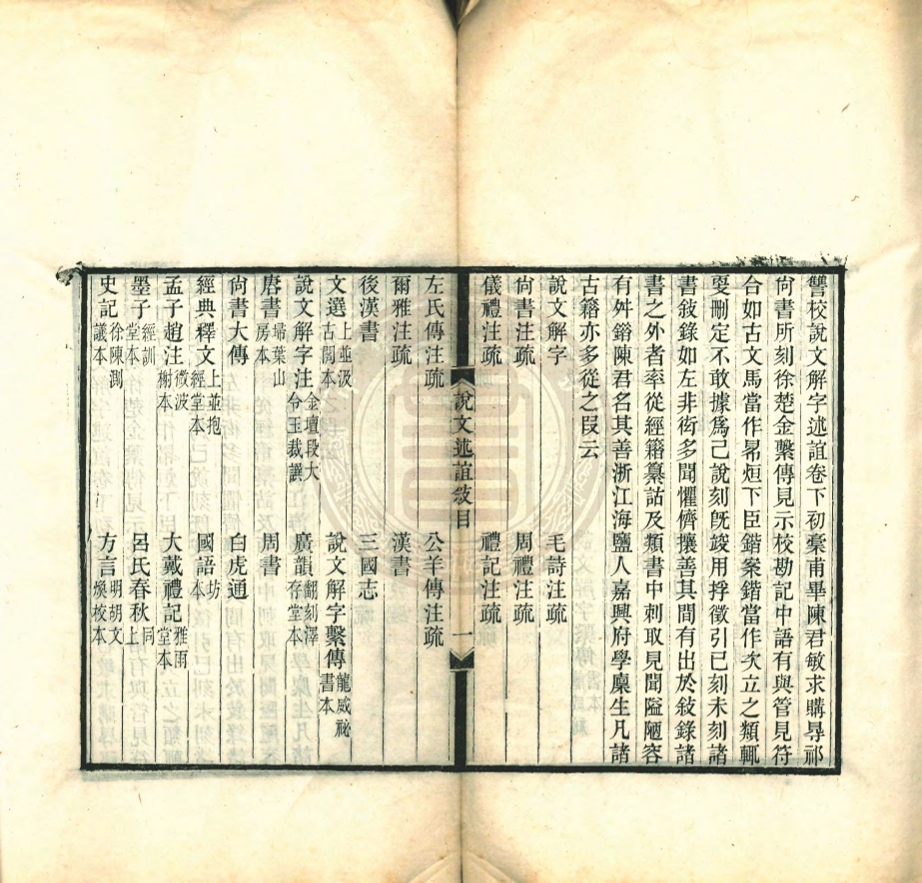 讐校說文解字述誼卷下初稾甫畢陳君敏求購尋祁
尙書所刻徐楚金繫傳見示校勘記中語有與管見符
合如古文馬當作影烜下臣鍇案鍇當作次立之類輒
耍刪定不敢據爲己說刻旣竣用捊徵引已刻未刻諸
書敍錄如左非衒多聞懼儕攘善其間有出於敍錄諸
書之外者率從經籍纂詁及類書中刺取見聞隘陋容
有舛鎝陳君名其善浙江海鹽人嘉興府學廩生凡諸
古籍亦多從之叚云
說文解字 毛詩注疏
尙書注疏 周禮注疏
儀禮注疏 禮記注疏
說文述誼敍目 一
左氏傳注疏 公羊傳注疏
爾雅注疏 漢書
後漢書 三國志
文選 上並汲古閣本 說文解字繫傳 龍威祕書本
說文解字注 金壇段大令玉裁讓 廣韻 翻刻澤存堂本
唐書 埽葉山房本 周書
尙書大傳 白虎通
經典釋文 上並抱經堂本 國語 坊本
孟子趙注 微波榭本 大戴禮記 雅雨堂本
墨子 經訓堂本 呂氏春秋 同上
史記 徐陳測議本 方言 明胡文煥校本